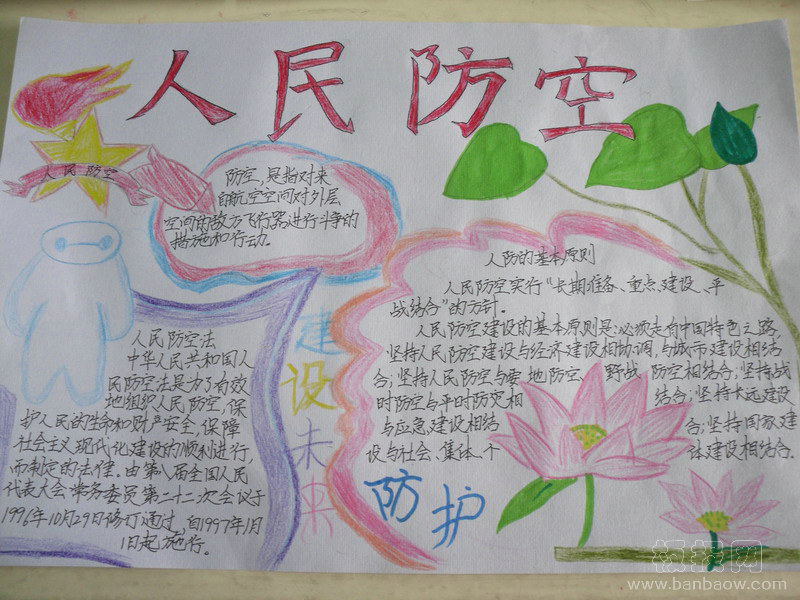 人民防空
人民防空
防空,是指对来
自航空空间对外层
空间的敌方飞行器进行斗争的
措施和行动。
人民防空法
中华人民共和国人
民防空法是为了有效
地组织人民防空,保
护人民的生命和财产安全,保障
社会主义现代化建设的顺利进行
而制定的法律。由第八届全国人民
代表大会常务委员第二十二次会议于
1996年10月29日修订通过,自1997年1月
1日起施行。
建设未来
人防的基本原则
人民防空实行“长期准备、重点建设、平
战结合”的方针。
人民防空建设的基本原则是:必须走有中国特色之路,
坚持人民防空建设与经济建设相协调,与城市建设相结
合;坚持人民防空与要地防空、野战防空相结合;坚持战
时防空与平时防灾相结合;坚持长远建设
与应急建设相结合;坚持国家建
设与社会、集体、个体建设相结合.
防护
板报网
www.banbaow.com